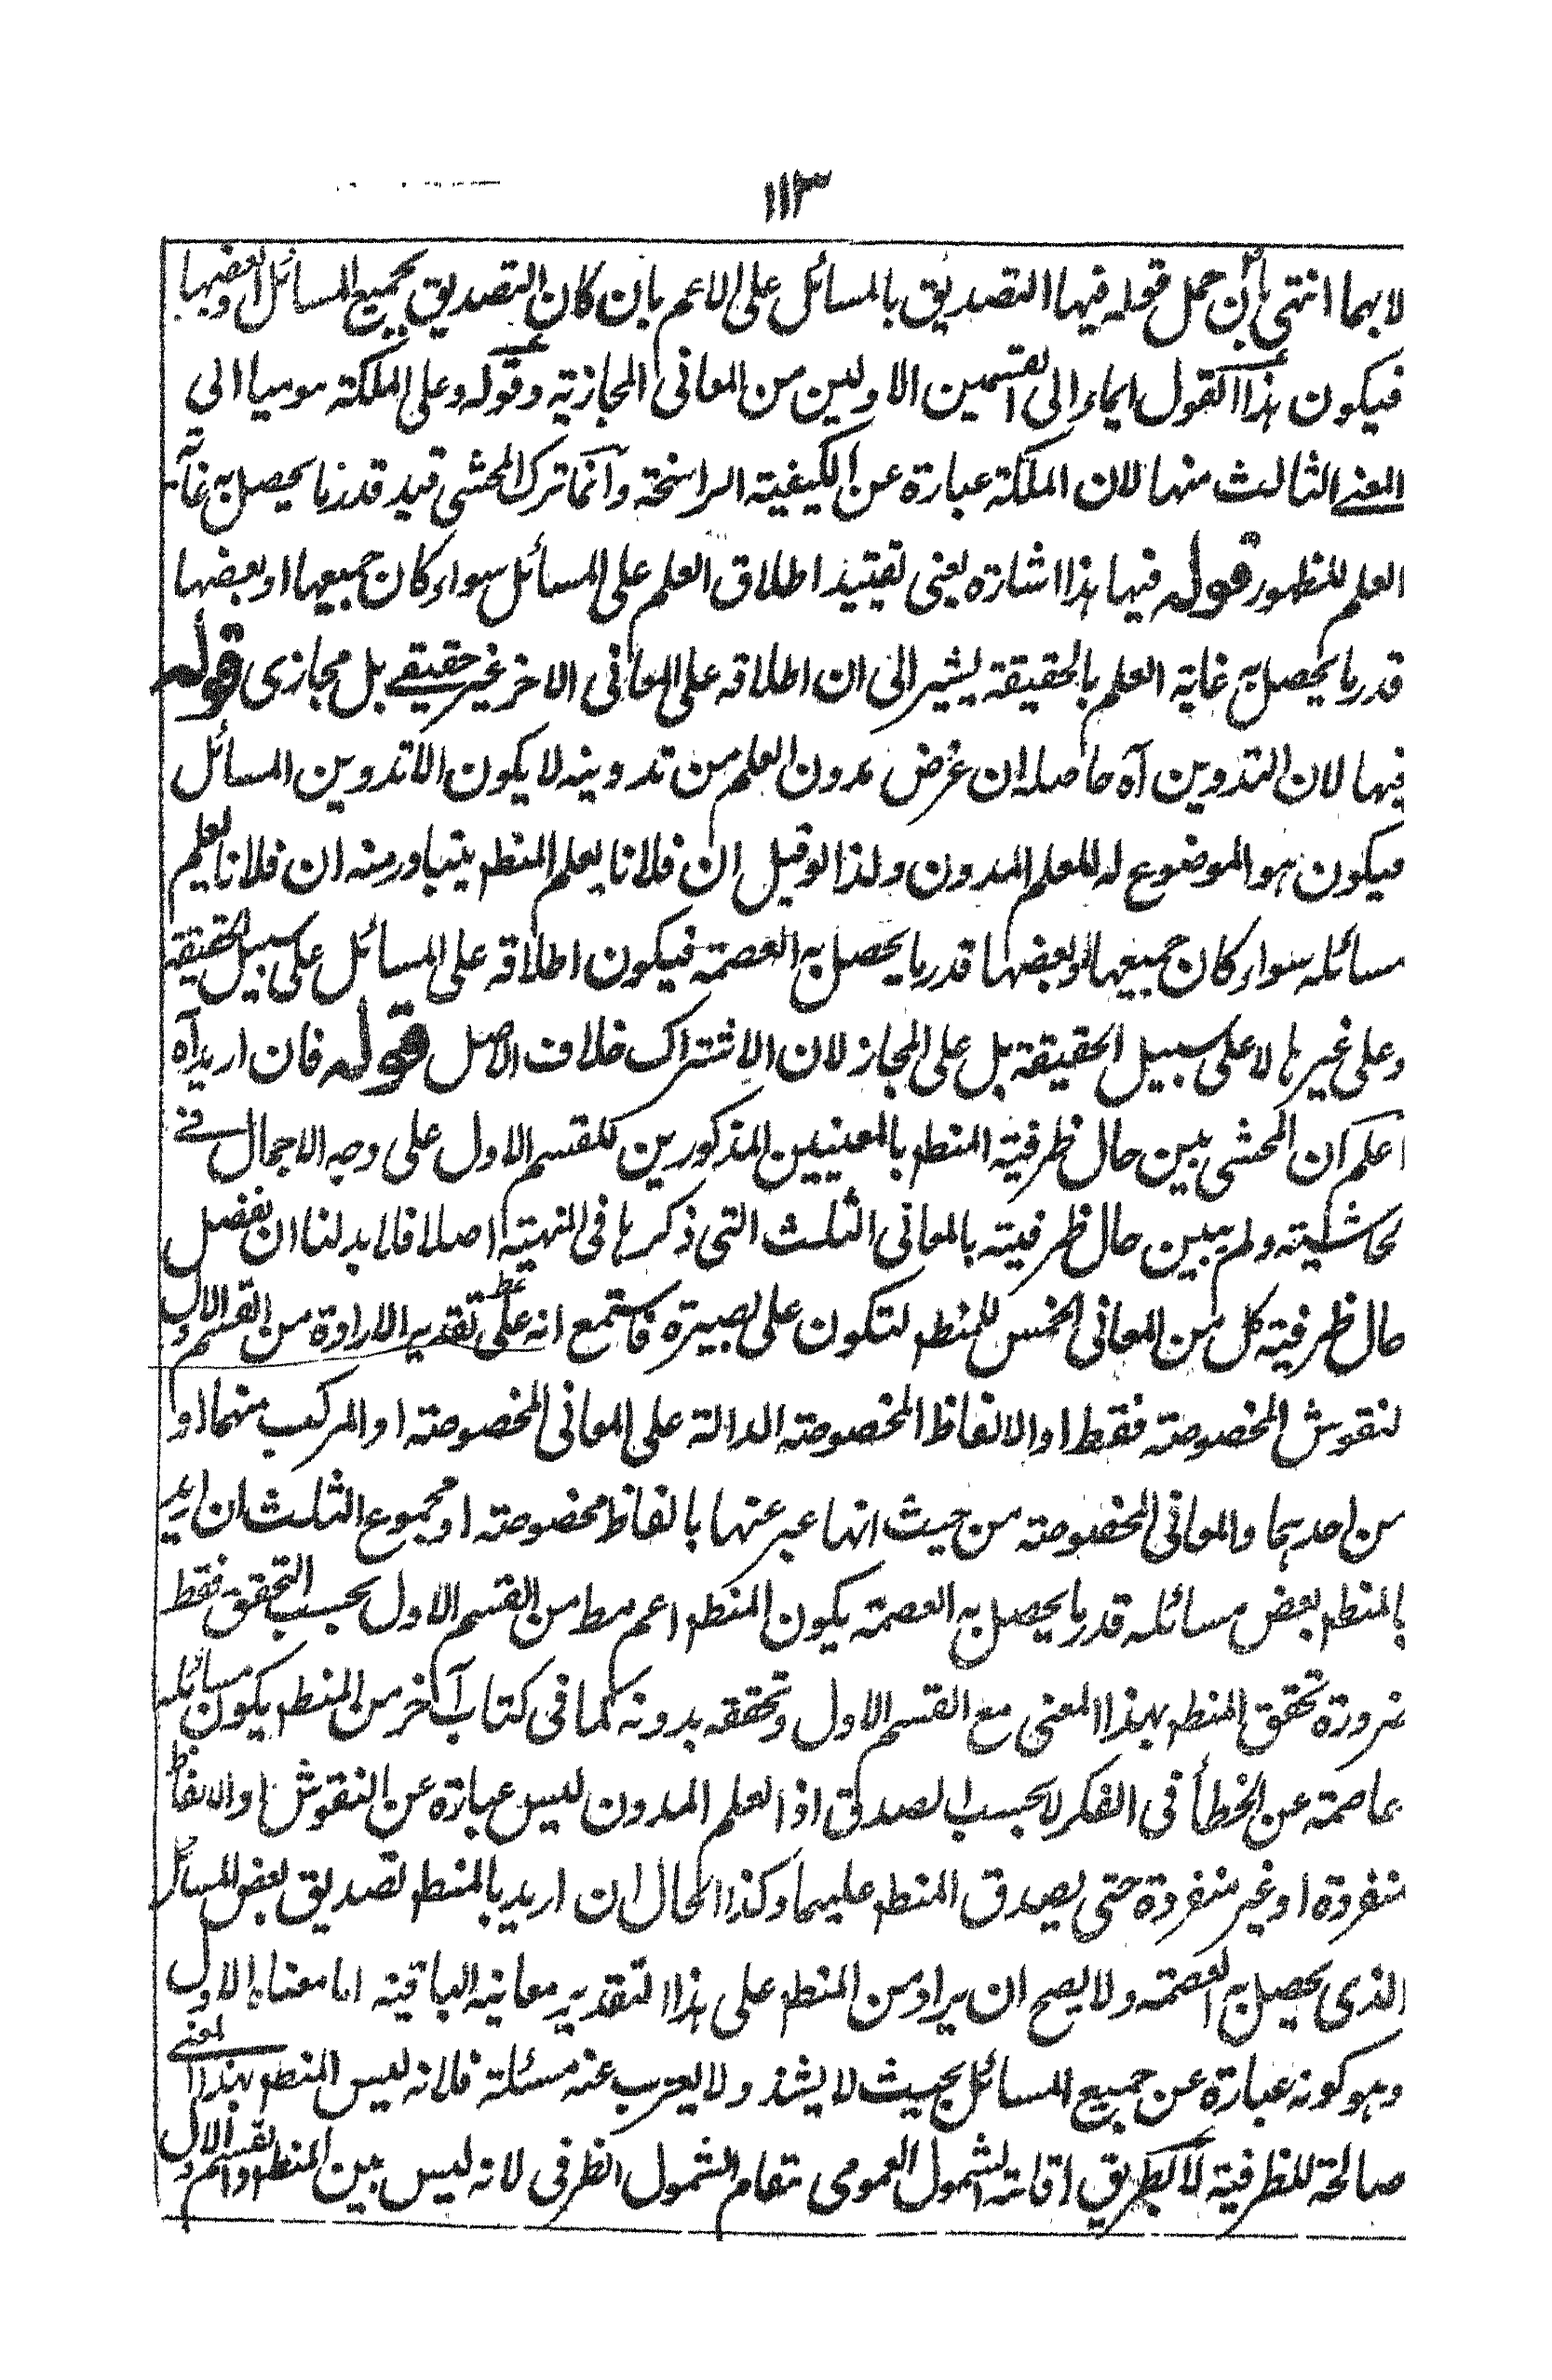 ١١٣
لابهما انتهى بأن حمل قوله فيها التصديق بالمسائل على الاعم بان كان التصديق بجميع المسائل او بعضها
فيكون هذا القول ايماء الى القسمين الاولين من المعانى المجازية وقوله وعلى الملكة موميا الى
المعنى الثالث منها لان الملكة عبارة عن الكيفية الراسخة وانما ترك المحشى قيد قدرما يحصل به غاية
العلم للظهور قوله فيها هذا اشارة يعنى تقييد اطلاق العلم على المسائل سواء كان جميعها او بعضها
قدرما يحصل به غاية العلم بالحقيقة يشير الى ان اطلاقه على المعانى الاخر غير حقيقى بل مجازى قوله
فيها لان التدوين آه حاصله ان غرض مدون العلم من تدوينه لا يكون الا تدوين المسائل
فيكون هو الموضوع له للعلم المدون ولذا لو قيل ان فلانا يعلم المنطم يتبادر منه ان فلانا يعلم
مسائله سواء كان جميعها او بعضها قدرما يحصل به العصمة فيكون اطلاقه على المسائل على سبيل الحقيقة
وعلى غيرها لا على سبيل الحقيقة بل على المجاز لان الاشتراك خلاف الاصل قوله فان اريد آه
اعلم ان المحشى بين حال ظرفية المنطم بالمعنيين المذكورين للقسم الاول على وجه الاجمال فى
حاشيته ولم يبين حال ظرفيته بالمعانى الثلث التى ذكرها فى المنهية اصلا فلابد لنا ان نفصل
حال ظرفية كل من المعانى الخمس للمنطم لتكون على بصيرة فاستمع انه على تقدير الارادة من القسم الاول
لنقوش المخصوصة فقط او الالفاظ المخصوصة الدالة على المعانى المخصوصة او المركب منهما او
من احدهما والمعانى المخصوصة من حيث انها عبر عنها بالفاظ مخصوصة او مجموع الثلث ان اريد
بالمنطم بعض مسائله قدرما يحصل به العصمة يكون المنطم اعم مط من القسم الاول بحسب التحقق فقط
ضرورة تحقق المنطم بهذا المعنى مع القسم الاول وتحققه بدونه كما فى كتاب آخر من المنطم يكون مسائله
عاصمة عن الخطأ فى الفكر لا بحسب الصدق اذ العلم المدون ليس عبارة عن النقوش او الالفاظ
منفردة او غير منفردة حتى يصدق المنطم عليهما وكذا الحال ان اريد بالمنطم تصديق بعض المسائل
الذى يحصل به العصمة ولا يصح ان يراد من المنطم على هذا التقدير معانيه الباقية اما معناه الاول
وهو كونه عبارة عن جميع المسائل بحيث لا يشذ ولا يعزب عنه مسئلة فلانه ليس المنطم بهذا المعنى
صالحة للظرفية لا بطريق اقامة الشمول العمومى مقام الشمول الظرفى لانه ليس بين المنطم والقسم الاول